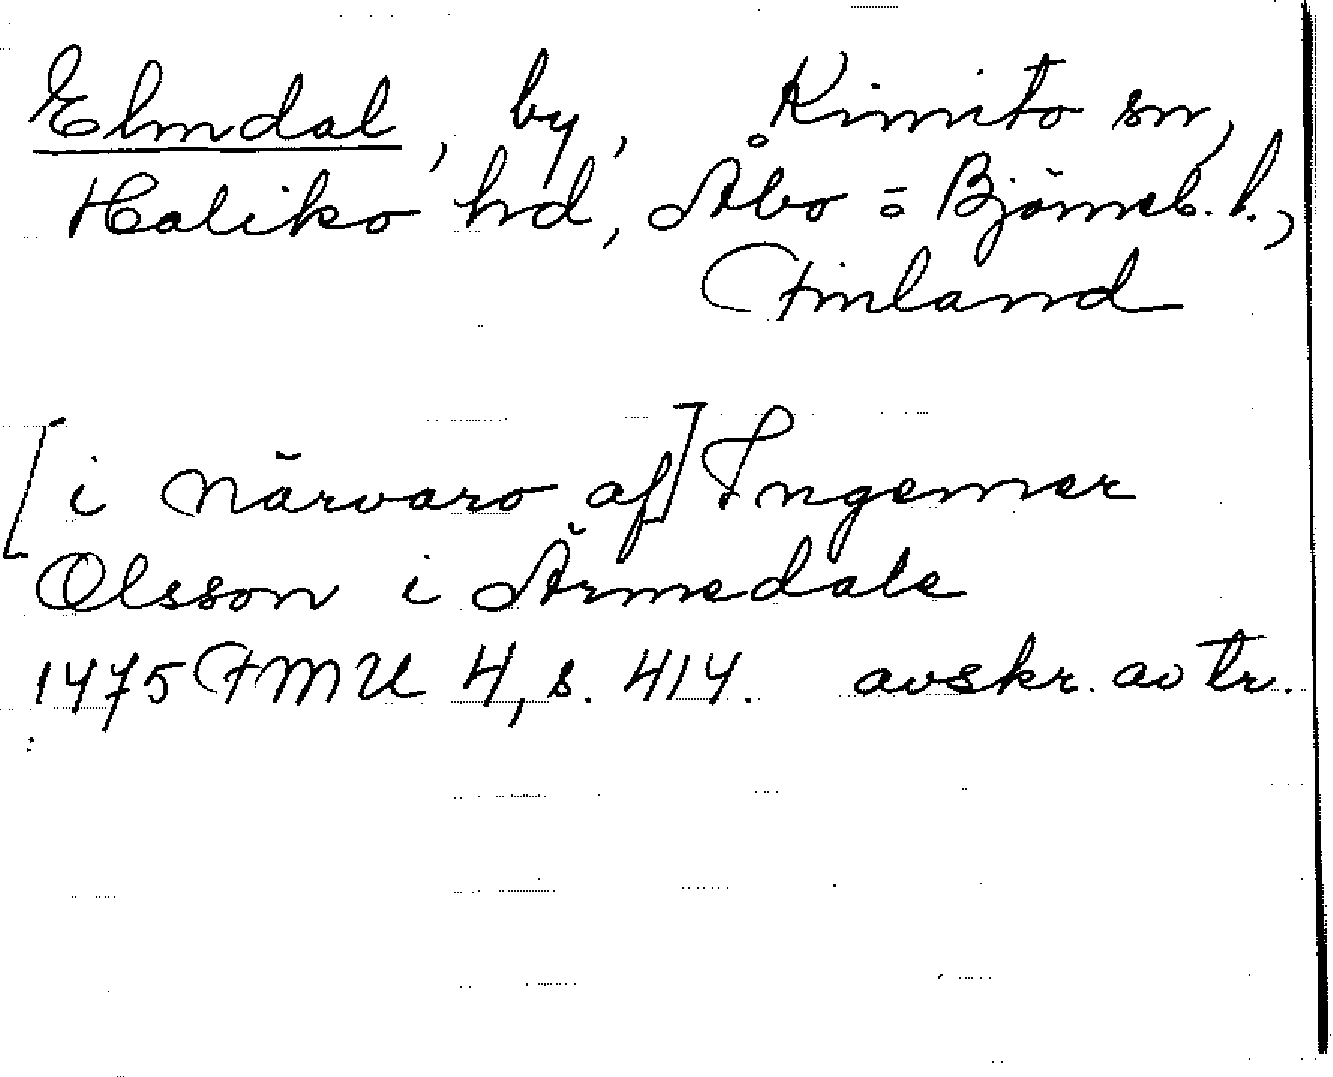 Elmdal, by, Kimito sn,
Haliko hd, Åbo = Björneb. l.,
Finland
[i närvaro af] Ingemar
Olsson i Ärmedale
1475 FMU 4, s. 414. avskr. av tr.